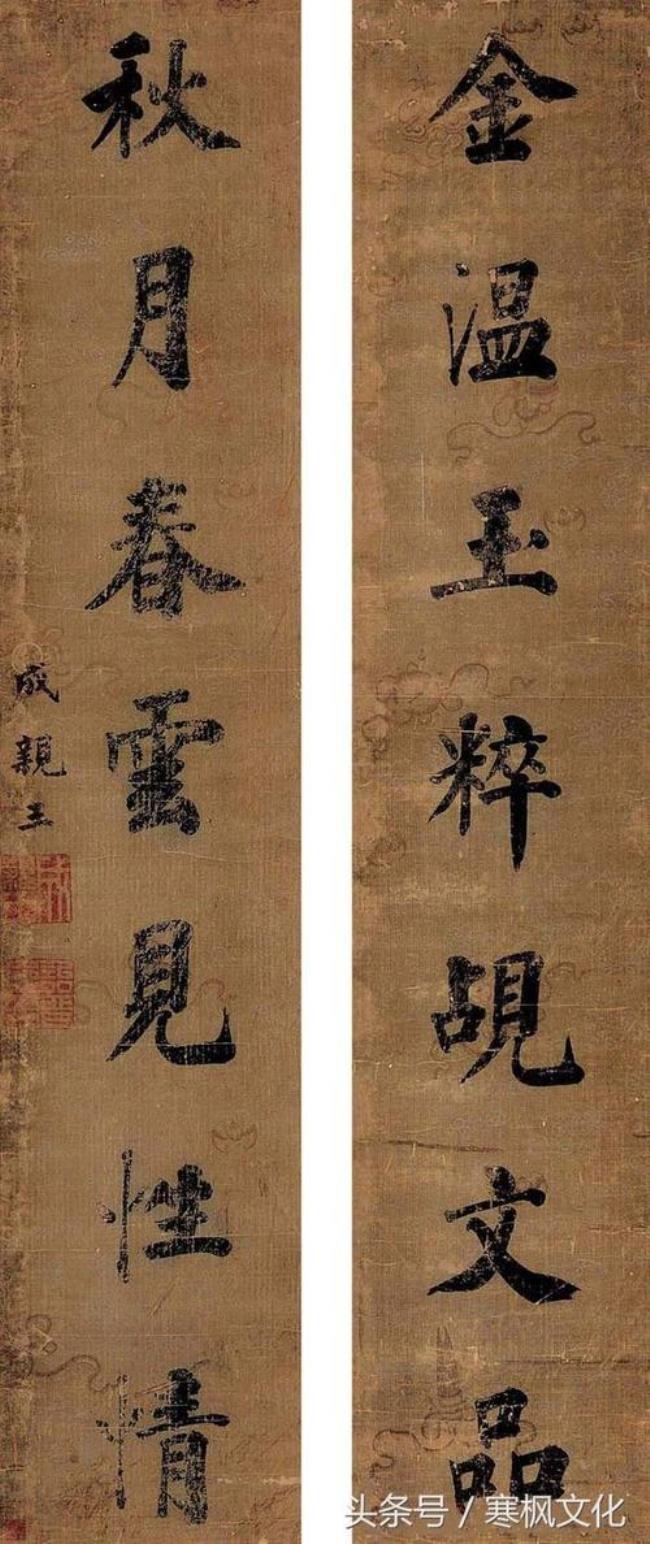 金温玉粹覘文品
秋月春雲見性情
成親王
头条号 / 寒枫文化